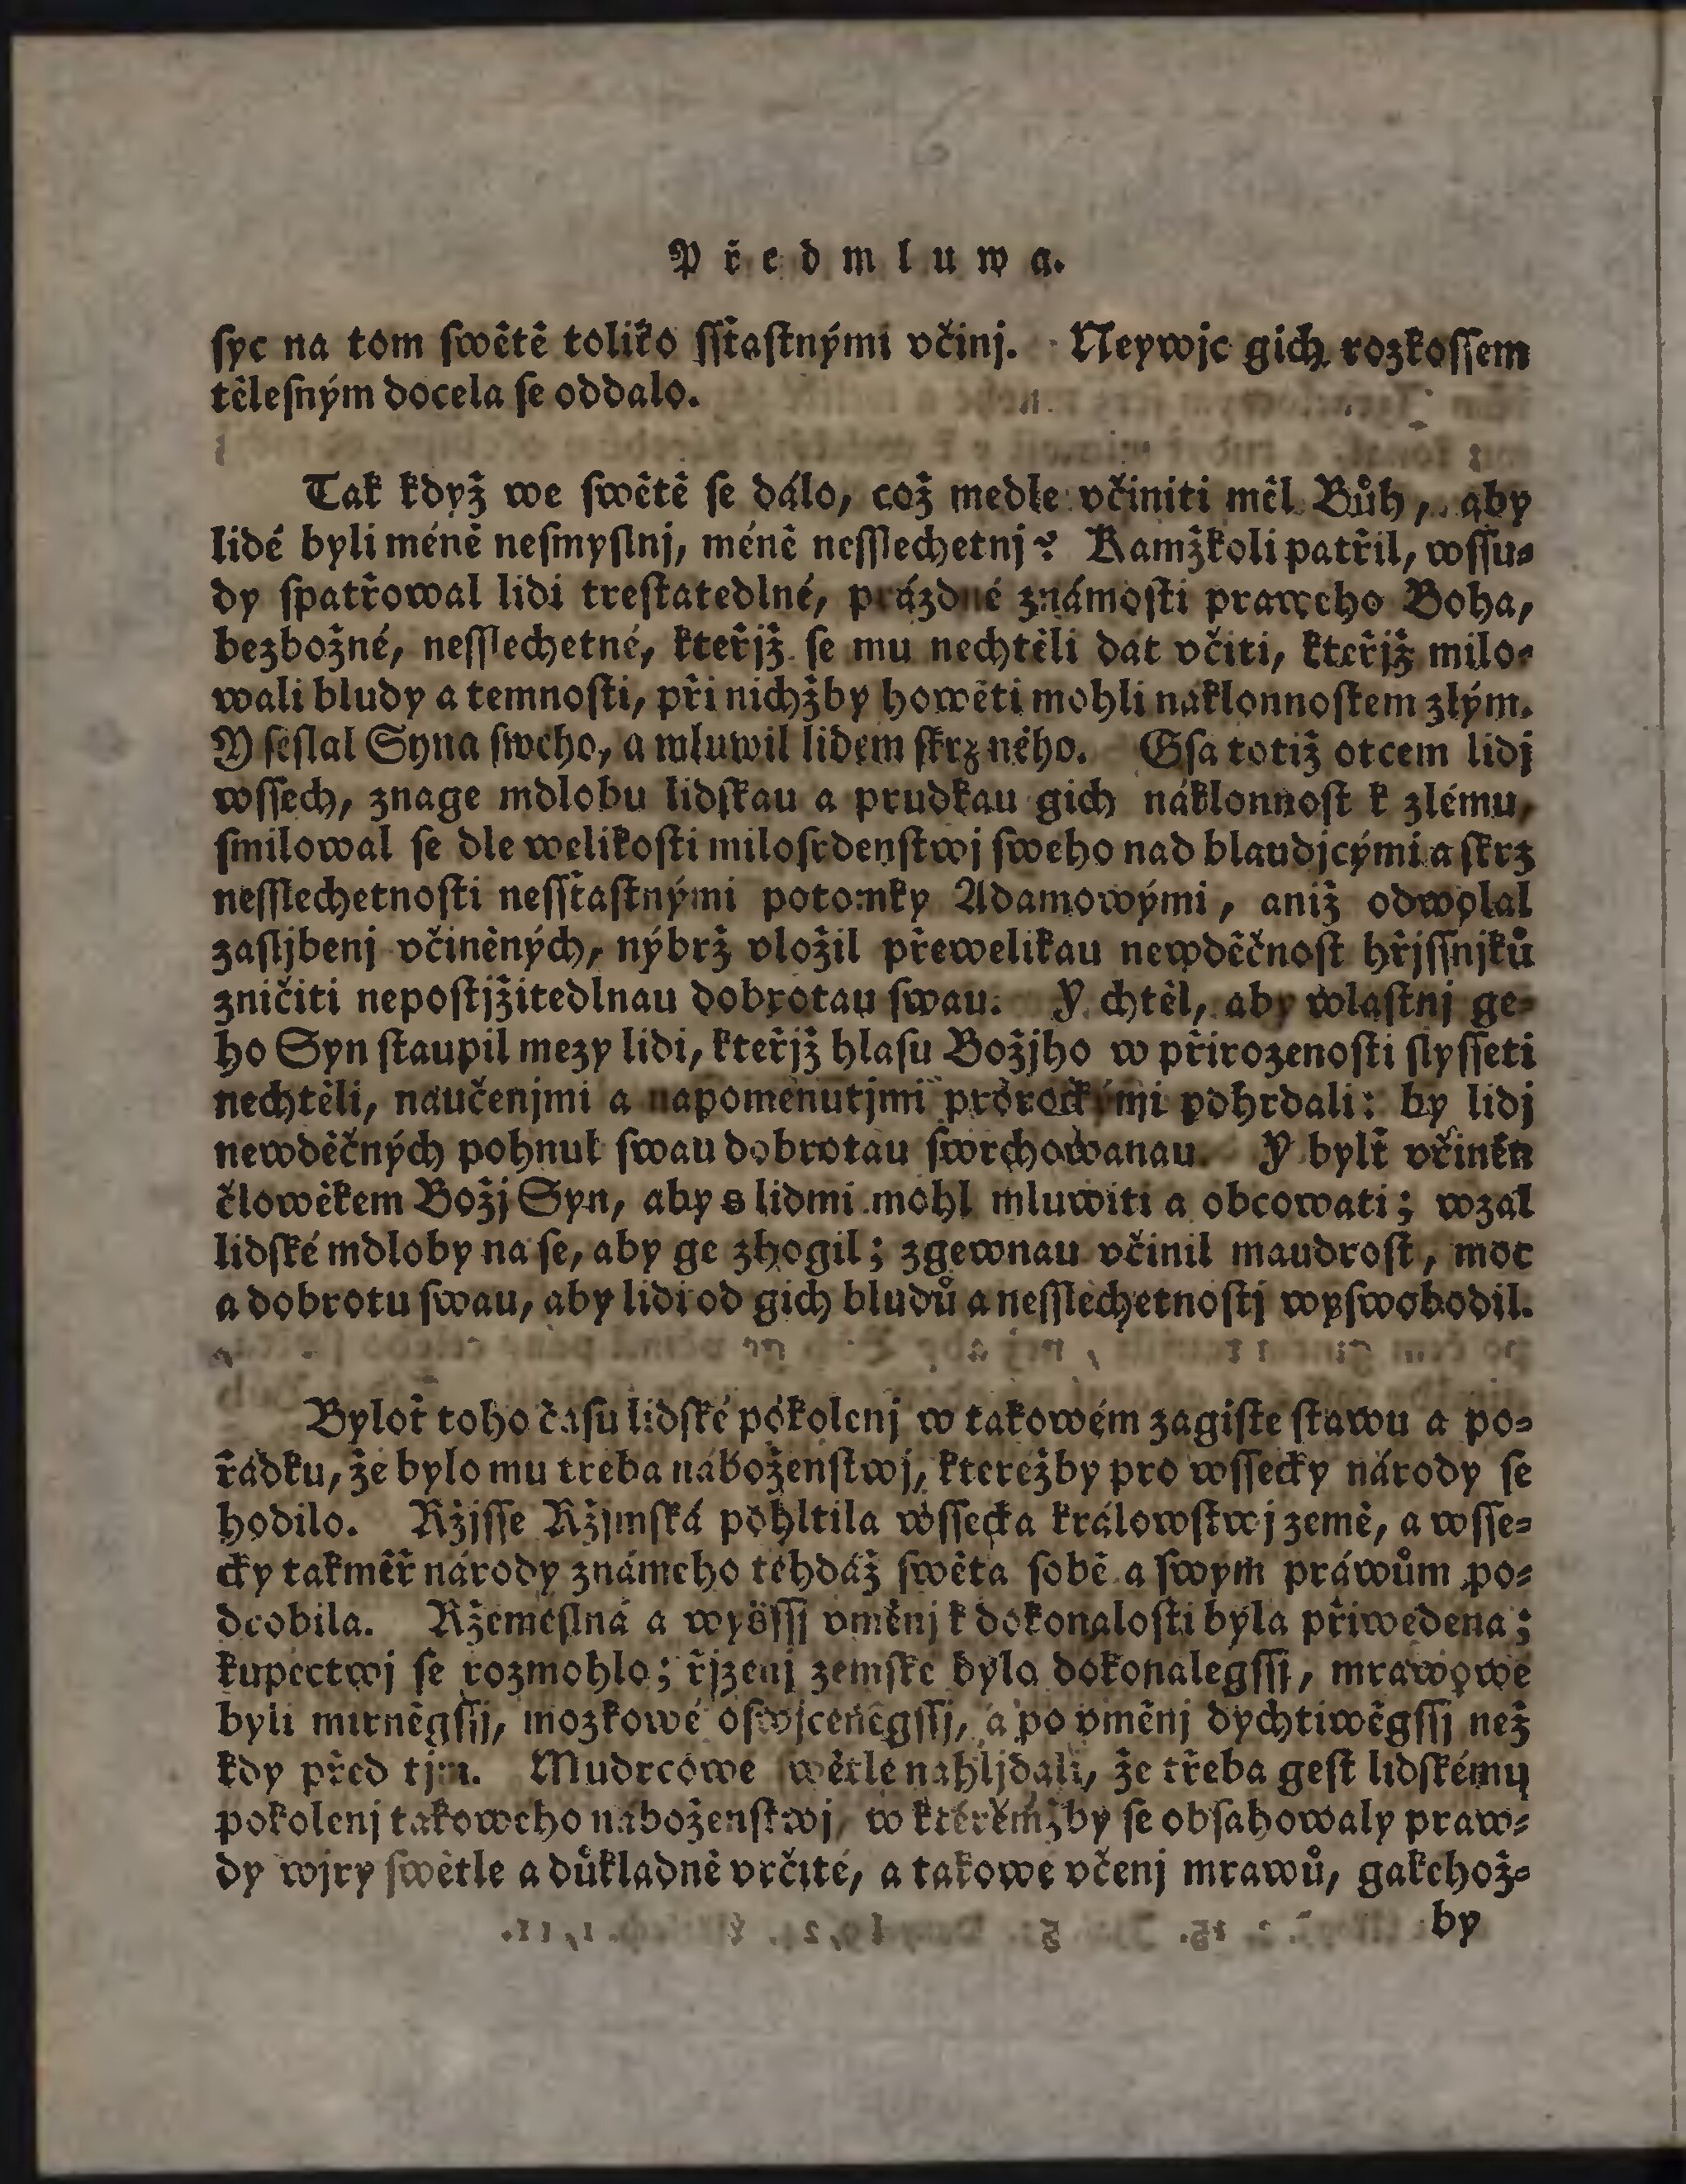 Předmluwa.
ſyc na tom ſwětě toliko ſſťaſtnými včinj. Neywjc gich rozkoſſem
tělesným docela ſe oddalo.
Tak když we ſwětě ſe dálo, což medle včiniti měl Bůh, aby
lidé byli méně neſmyſlnj, méně neſſlechetnj? Kamžkoli patřil, wſſu-
dy ſpatřowal lidi treſtatedlné, prázdné známoſti praweho Boha,
bezbožné, neſſlechetné, kteřjž ſe mu nechtěli dát včiti, kteřjž milo-
wali bludy a temnoſti, při nichžby howěti mohli náklonnoſtem zlým.
Y ſeſlal Syna ſwého, a mluwil lidem ſkrz něho. Gſa totiž otcem lidj
wſſech, znage mdlobu lidſkau a prudkau gich náklonnoſt k zlému,
ſmilowal ſe dle welikoſti miloſrdenſtwj ſweho nad blaudjcými a ſkrz
neſſlechetnoſti neſſťaſtnými potomky Adamowými, aniž odwolal
zaſljbenj včiněných, nýbrž vložil přewelikau newděčnoſt hřjſſnjků
zničiti nepoſtjžitedlnau dobrotau ſwau. Y chtěl, aby wlaſtnj ge-
ho Syn ſtaupil mezy lidi, kteřjž hlaſu Božjho w přirozenoſti ſlyſſeti
nechtěli, naučenjmi a napomenutjmi prorockými pohrdali: by lidj
newděčných pohnul ſwau dobrotau ſwrchowanau. Y bylť včiněn
člowěkem Božj Syn, aby s lidmi mohl mluwiti a obcowati; wzal
lidſké mdloby na ſe, aby ge zhogil; zgewnau včinil maudroſt, moc
a dobrotu ſwau, aby lidi od gich bludů a neſſlechetnoſtj wyſwobodil.
Byloť toho času lidſké pokolenj w takowém zagiſte ſtawu a po-
řádku, že bylo mu třeba náboženſtwj, kterežby pro wſſecky národy ſe
hodilo. Ržjſſe Ržjmſká pohltila wſſecka králowſtwj země, a wſſe-
cky takměř národy známeho tehdáž ſwěta ſobě a ſwým práwům po-
drobila. Ržemeſlná a wyšſſj vměnj k dokonaloſti byla přiwedena;
kupectwj ſe rozmohlo; řjzenj zemſke bylo dokonalegſſj, mrawowe
byli mírněgſſj, mozkowé oſwjceněgſſj, a po vměnj dychtiwěgſſj než
kdy před tjm. Mudrcowe ſwětle nahljdali, že třeba geſt lidſkému
pokolenj takoweho náboženſtwj, w kterémžby ſe obſahowaly praw-
dy wjry ſwětle a důkladně vrčité, a takowe včenj mrawů, gakehož-
by